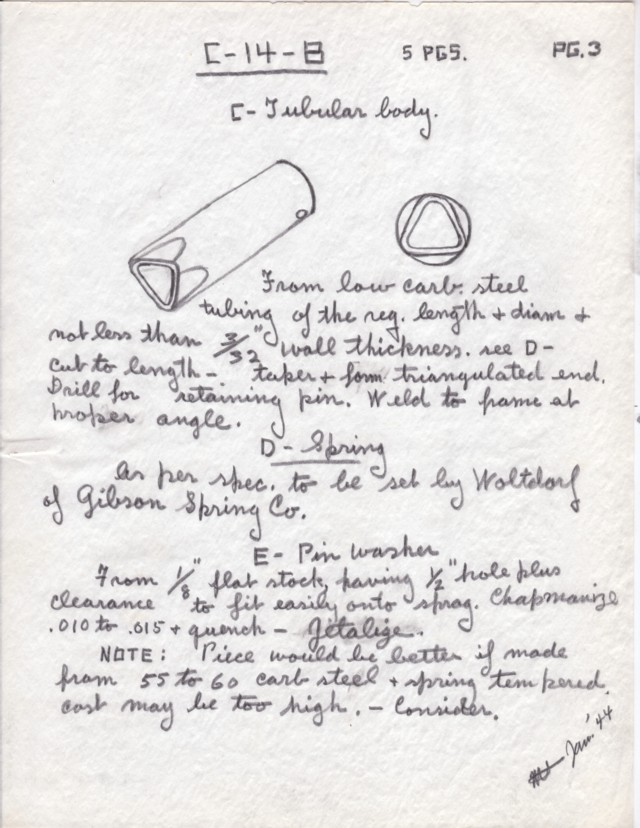 C-14-B 5 PGS. PG.3
C- Tubular body.
From low carb. steel
tubing of the req. length + diam +
not less than 3/32" wall thickness. see D-
cut to length - taper + form triangulated end.
Drill for retaining pin. Weld to frame at
proper angle.
D- Spring
As per spec. to be set by Woltdorf
of Gibson Spring Co.
E- Pin washer
From 1/8" flat stock, having 1/2" hole plus
clearance to fit easily onto sprag. Chapmanize
.010 to .015 + quench - Jetalize.
NOTE: Piece would be better if made
from 55 to 60 carb steel + spring tempered.
cost may be too high. - Consider.
Jan. '44